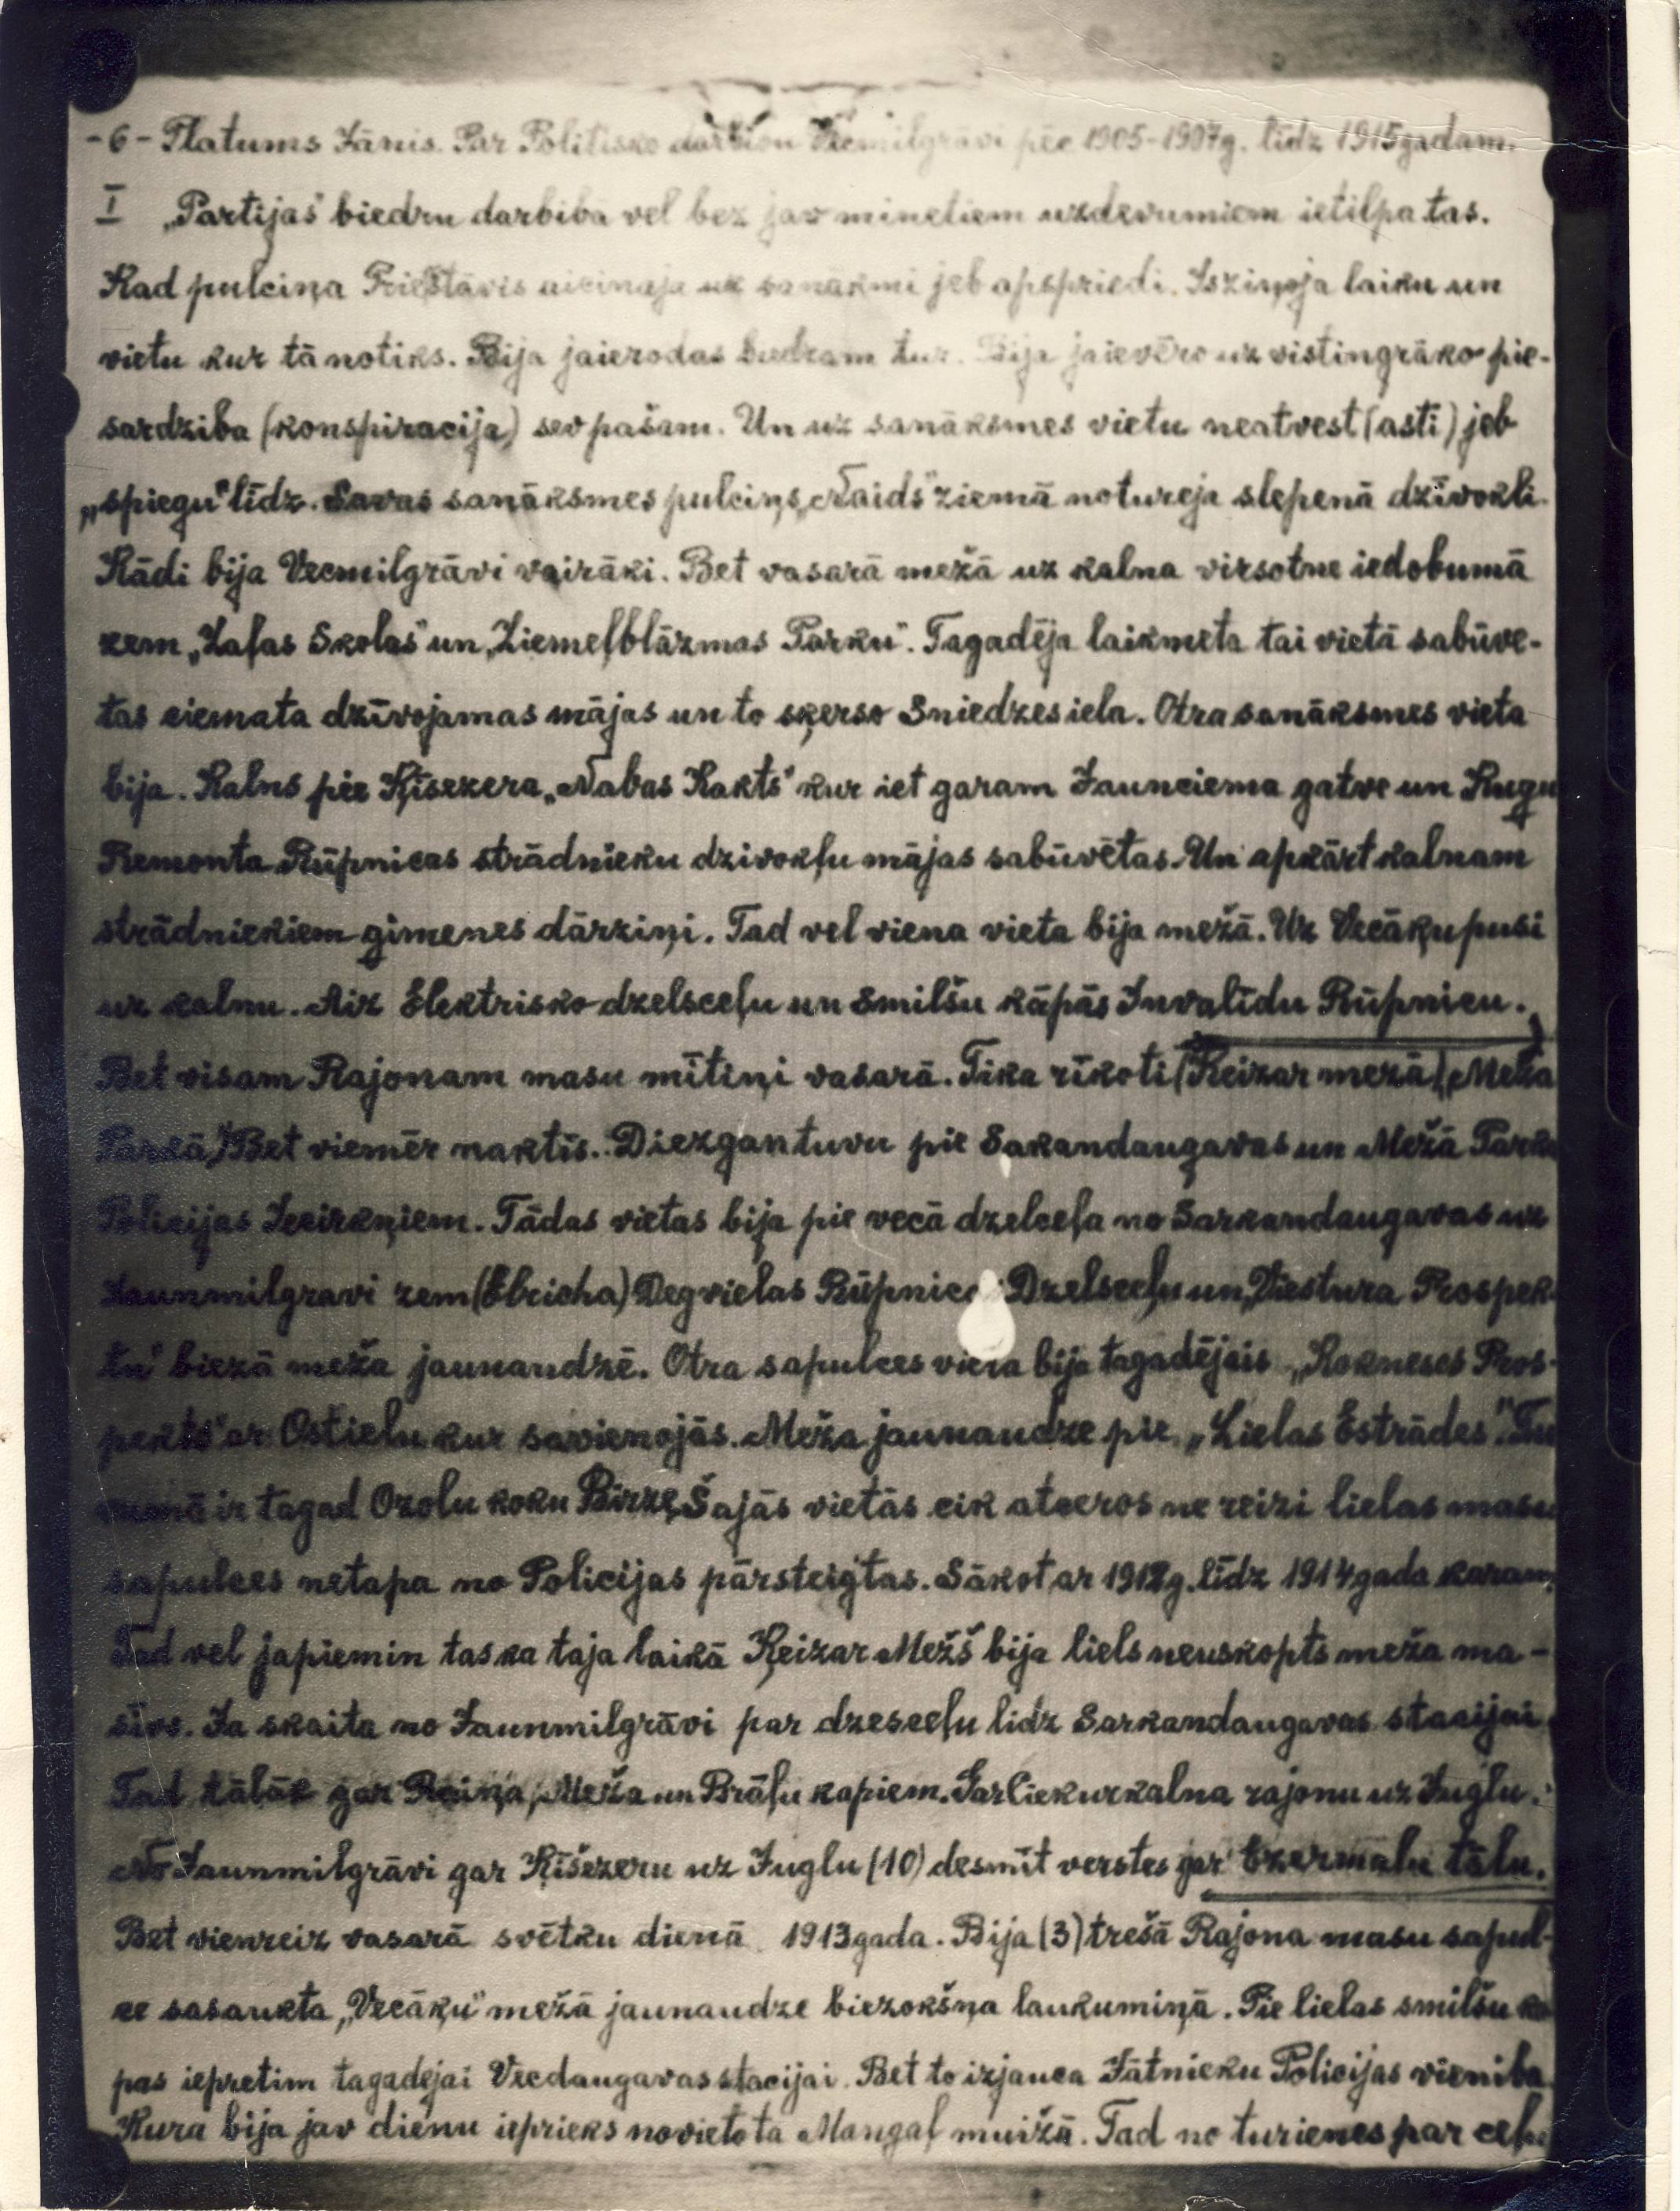 -6- Platums Jānis. Par Politisko darbību Vecmilgrāvi pēc 1905-1907g. līdz 1915gadam.
I „Partijas" biedru darbibā vel bez jav mineliem uzdevumiem ietilpa tas.
Kad pulciņa Priekstāvis aicinaja uz sanāksmi jeb apspriedi. Iszinoja laiku un
vietu kur tā notiks. Bija jaierodas biedram tur. Bija jaievēro uz vistingrāko pie-
sardziba (konspiracija) sev pašam. Un uz sanāksmes vietu neatvest (asti) jeb
„spiegu" līdz. Savas sanāksmes pulciņš „Naids" ziemā notureja slepenā dzīvokli.
Kādi bija Vecmilgrāvi vairāki. Bet vasarā mežā uz kalna virsotne iedobumā
zem „Zaļas Skolas" un „Ziemeļblāzmas Parku". Tagadēja laikmeta tai vietā sabūve-
tas ciemata dzīvojamas mājas un to sķerso Sniedzes iela. Otra sanāksmes vieta
bija. Kalns pie Ķīsezera „Nabas Kakts" kur iet garam Jaunciema gatve un Kugu
Remonta Rūpnicas strādnieku dzivokļu mājas sabūvētas. Un apkārt kalnam
strādniekiem gimenes dārziņi. Tad vel viena vieta bija mežā. Uz Vecāķu pusi
uz kalnu. Aiz Elektrisko dzelsceļu un Smilšu kāpās Invalīdu Rūpnicu.
Bet visam Rajonam masu mītiņi vasarā. Tika rīkoti (Ķeizar mezā) „Meža
Parkā" Bet vienmēr naktīs. Diezgan tuvu pie Sakandaugavas un Mežā Parka
Policijas Iecirkņiem. Tādas vietas bija pie vecā dzelceļa no Sarkandaugavas uz
Jaunmilgravi zem (Ebricha) Degvielas Rūpnic Dzelsceļu un „Viestura Prospek-
tu" biezā meža jaunaudzē. Otra sapulces vieta bija tagadējais „Kokneses Pros-
pekts" ar Ostielu kur savienojās. Meža jaunaudze pie „Lielas Estrādes".
ir tagad Ozolu koku Birze, Šajās vietās cik atceros ne reizi lielas masu
sapulces netapa no Policijas pārsteigtas. Sākot ar 1912g. līdz 1914gada karam.
Tad vel japiemin tas ka taja laikā Ķeizar Mežš bija liels neuskopts meža ma-
sivs. Ja skaita no Jaunmilgrāvi par dzesceļu lidz Sarkandaugavas stacijai.
Tad tālāk gar Raiņa, Meža un Brāļu kapiem. Gar Ciekurkalna rajonu uz Juglu.
No Jaunmilgrāvi gar Ķīšezeru uz Juglu (10) desmit verstes gar Ezermalu tālu.
Bet vienreiz vasarā svētku dienā 1913gada. Bija (3) trešā Rajona masu sapul-
ce sasaukta „Vecāķu" mežā jaunaudze biezokšņa laukumiņā. Pie lielas smilšu ka-
pas iepretim tagadejai Vecdaugavas stacijai. Bet to izjauca Jātnieku Policijas vieniba
Kura bija jav dienu iepriekš novietota Mangaļ muižā. Tad no turienes par ceļu